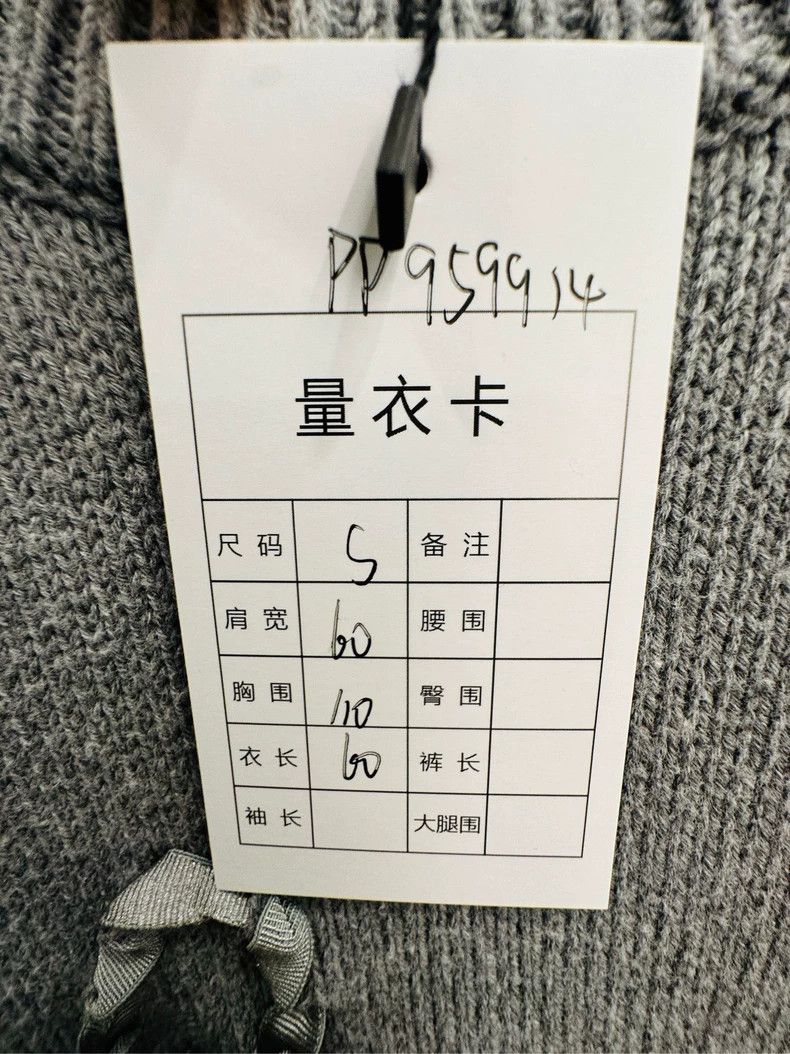 PP959914
量衣卡
尺码 S 备注
肩宽 60 腰围
胸围 110 臀围
衣长 60 裤长
袖长 大腿围